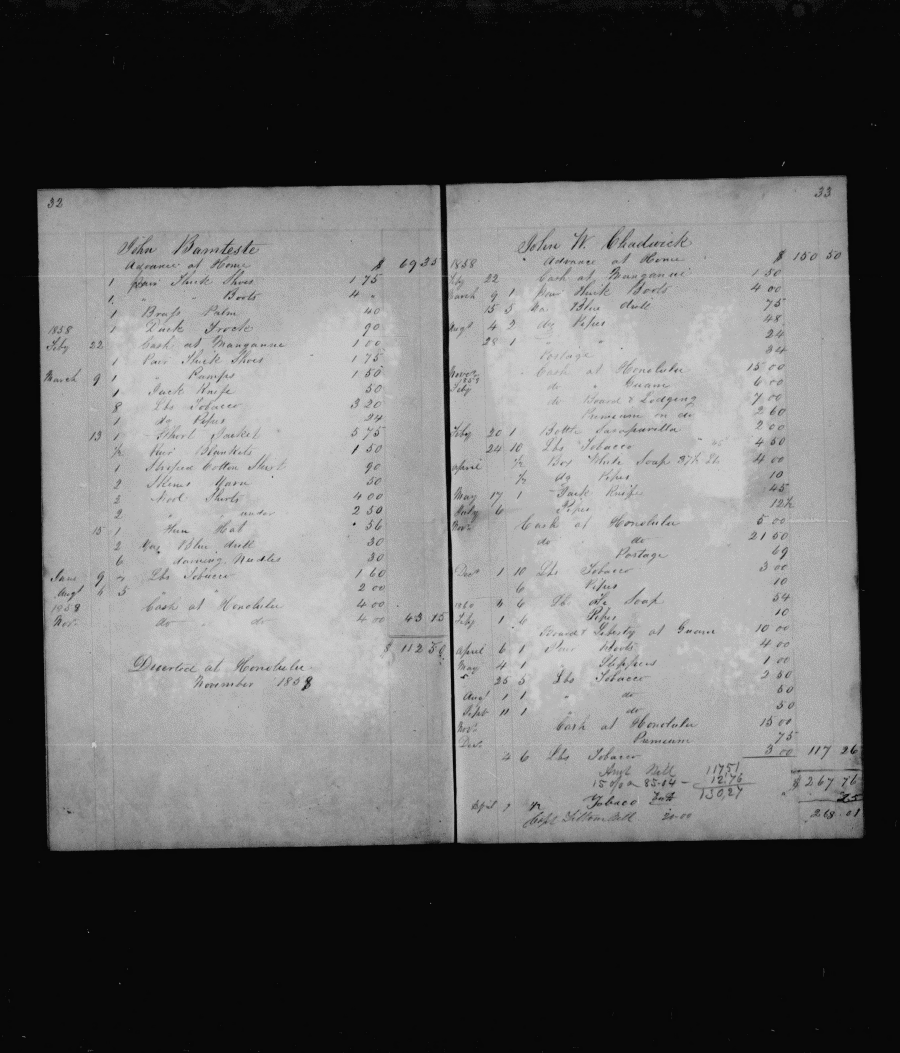 32
John Bamteste
Advance at Home $ 69 35
1 pair Thick Shoes 1 75
1 " " Boots 4 "
1 Brass Palm 40
1858 1 Duck Frock 90
Feby 22 Cash at Manganui 1 00
1 Pair Thick Shoes 1 75
March 9 1 " Pumps 1 50
1 Jack Knife 50
8 Lbs Tobacco 3 20
1 dz Pipes 24
13 1 Short Jacket 5 75
1/2 Pair Blankets 1 50
1 Striped Cotton Shirt 90
2 Skeins Yarn 50
2 Wool Shirts 4 00
2 " under 2 50
15 1 Hat 56
2 Yds Blue drill 30
6 darning Needles 30
June 9 Lbs Tobacco 1 60
Augt 6 5 " 2 00
1858 Cash at Honolulu 4 00
Nov. do " do 4 00 43 15
$ 112 50
Deserted at Honolulu
November 1858
33
John W. Chadwick
1858 " Advance at Home $ 150 50
Feby 22 Cash at Manganui 1 50
March 9 1 pair Thick Boots 4 00
15 3 Yds Blue drill 75
Augt 4 2 dz Pipes 48
28 1 " " 24
Postage 34
Novr Cash at Honolulu 15 00
1859 Feby do " Guam 6 00
do Board & Lodging 7 00
Premium on do 2 60
Feby 20 1 Bottle Sarsaparilla 2 00
24 10 Lbs Tobacco 4 50
April 1/2 Box White Soap 37 1/2 Lb 4 00
1/2 dz Pipes 10
May 17 1 Jack Knife 45
July 6 Pipes 12 1/2
Nov. Cash at Honolulu 5 00
do do 21 50
Postage 69
Decr 1 10 Lbs Tobacco 3 00
6 Pipes 10
1860 4 6 Lb Soap 54
Feby 1 6 Pipes 10
Board & Liberty at Guam 10 00
April 6 1 Pair Boots 4 00
May 4 1 " Slippers 1 00
" 25 5 Lbs Tobacco 2 50
Augt 1 1 " do 50
Sept 11 1 " do 50
Nov. Cash at Honolulu 15 00
Dec. Premium 75
4 6 Lbs Tobacco 3 00 117 26
Bill 117 51
15 0/0 on 85.04 – 12.76
130,27
$ 267 76
April Tobaco
Capt Bill 20.00
268.01